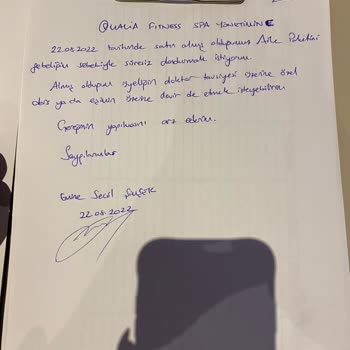 QUALIA FITNESS SPA YÖNETİMİNE
22.08.2022 tarihinde satın almış olduğumuz Aile Paketini
gebeliğim sebebiyle süresiz dondurmak istiyorum.
Almış olduğum üyeliğin doktor tavsiyesi üzerine özel
ders ya da eşimin üzerine devir de etmek isteyebilirim
Gereğinin yapılmasını arz ederim.
Saygılarımla
Emine Seçil ŞİMŞEK
22.08.2022